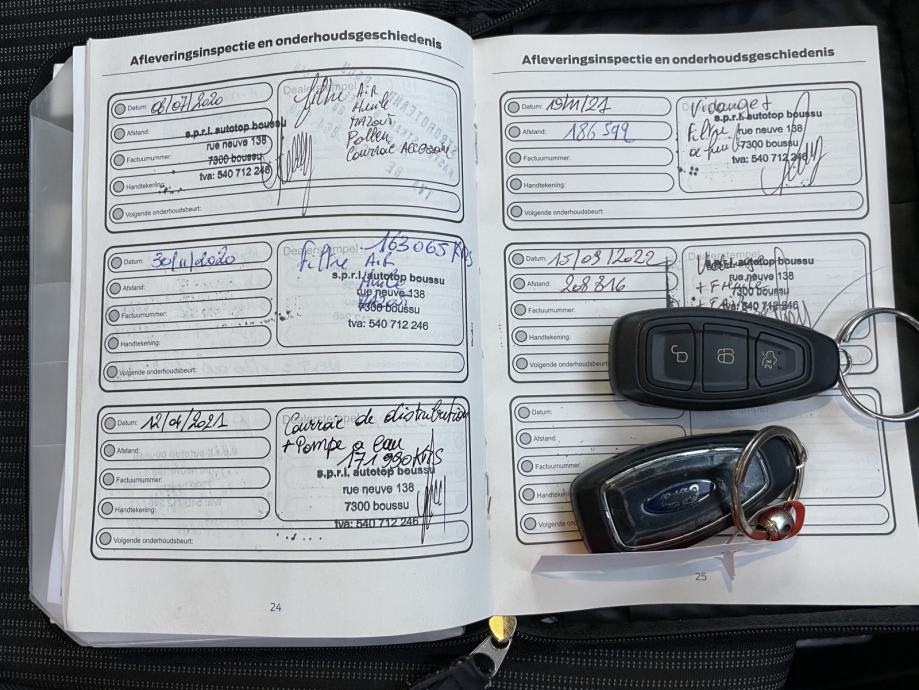 Afleveringsinspectie en onderhoudsgeschiedenis
Datum: 08/07/2020
Afstand:
Factuurnummer:
Handtekening:
Volgende onderhoudsbeurt:
filtre Air
Huile
MAZOUT
Pollen
Courroie Accessoire
s.p.r.l. autotop boussu
rue neuve 138
7300 boussu
tva: 540 712 246
Datum: 30/11/2020
Afstand:
Factuurnummer:
Handtekening:
Volgende onderhoudsbeurt:
Dealerstempel 163065 KMS
Filtre Air
Huile
MAZOUT
s.p.r.l. autotop boussu
rue neuve 138
7300 boussu
tva: 540 712 246
Datum: 12/04/2021
Afstand:
Factuurnummer:
Handtekening:
Volgende onderhoudsbeurt:
Dealerstempel
Courroie de distribution
+ Pompe a eau
171980 KMS
s.p.r.l. autotop boussu
rue neuve 138
7300 boussu
tva: 540 712 246
24
Afleveringsinspectie en onderhoudsgeschiedenis
Datum: 19/11/21
Afstand: 186599
Factuurnummer:
Handtekening:
Volgende onderhoudsbeurt:
Vidange +
Filtre
s.p.r.l. autotop boussu
rue neuve 138
7300 boussu
tva: 540 712 246
Datum: 15/09/2022
Afstand: 208816
Factuurnummer:
Handtekening:
Volgende onderhoudsbeurt
s.p.r.l. autotop boussu
rue neuve 138
7300 boussu
tva: 540 712 246
Datum:
Afstand:
Factuurnummer:
Volgende
2X
Ford
25